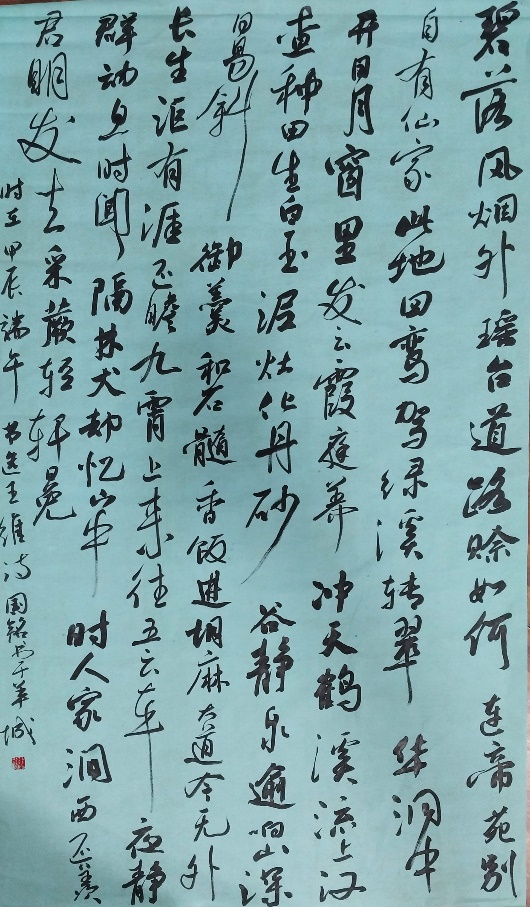 碧落风烟外瑶台道路赊如何连帝苑别
自有仙家此地回鸾驾缘溪转翠华洞中
开日月窗里发云霞庭养冲天鹤溪流上汉
查种田生白玉泥灶化丹砂谷静泉逾响山深
日易斜御羹和石髓香饭进胡麻大道今无外
长生讵有涯还瞻九霄上来往五云车夜静
群动息时闻隔林犬却忆山中时人家涧西远羡
君明发去采蕨轻轩冕
时在甲辰端午书选王维诗国铭书于羊城